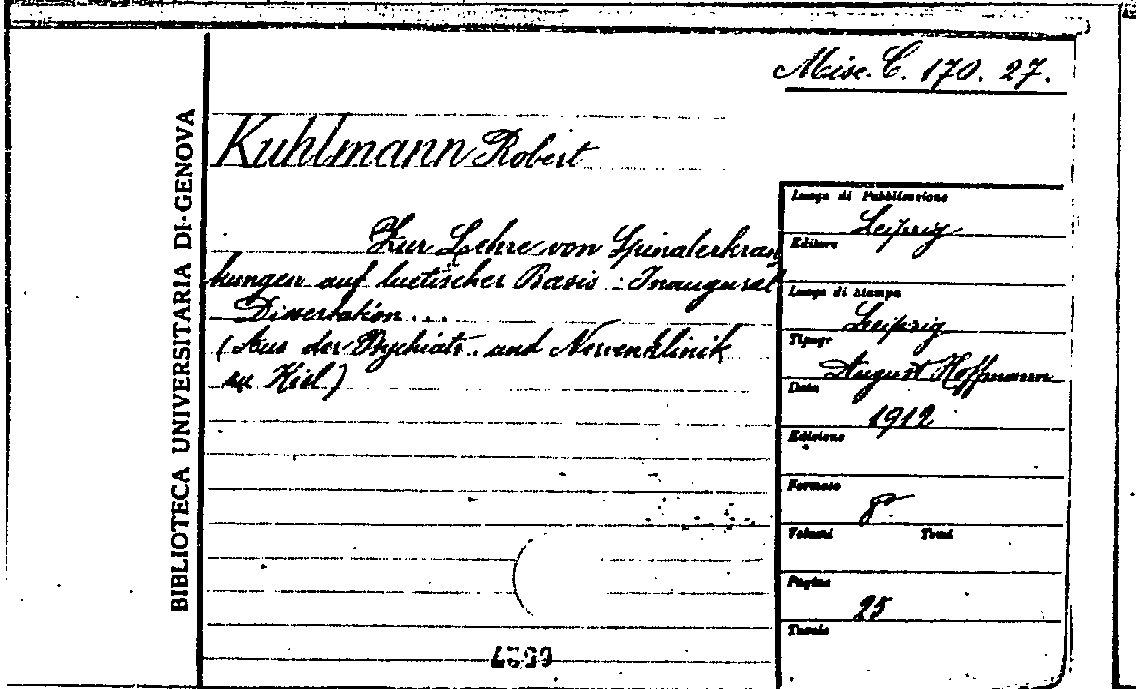 Misc. C. 170. 27.
BIBLIOTECA UNIVERSITARIA DI GENOVA
Kuhlmann Robert
Zur Lehre von Spinalerkran
kungen auf luetischer Basis - Inaugural
Dissertation...
(Aus der Psychiatr. und Nervenklinik
zu Kiel)
Luogo di Pubblicazione
Leipzig
Editore
Luogo di Stampa
Leipzig
Tipogr
August Hoffmann
Data
1912
Edizione
Formato
8°
Volumi Tomi
Pagine
25
Tavole